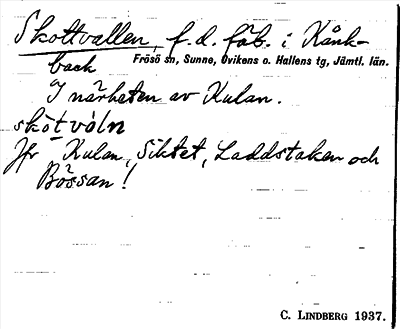 Skottvallen, f.d. fäb. i Kånk-
back Frösö sn, Sunne, Ovikens o. Hallens tg, Jämtl. län.
I närheten av Kulan.
skòt vàln
Jfr Kulan, Siktet, Laddstaken och
Bössan!
C. LINDBERG 1937.